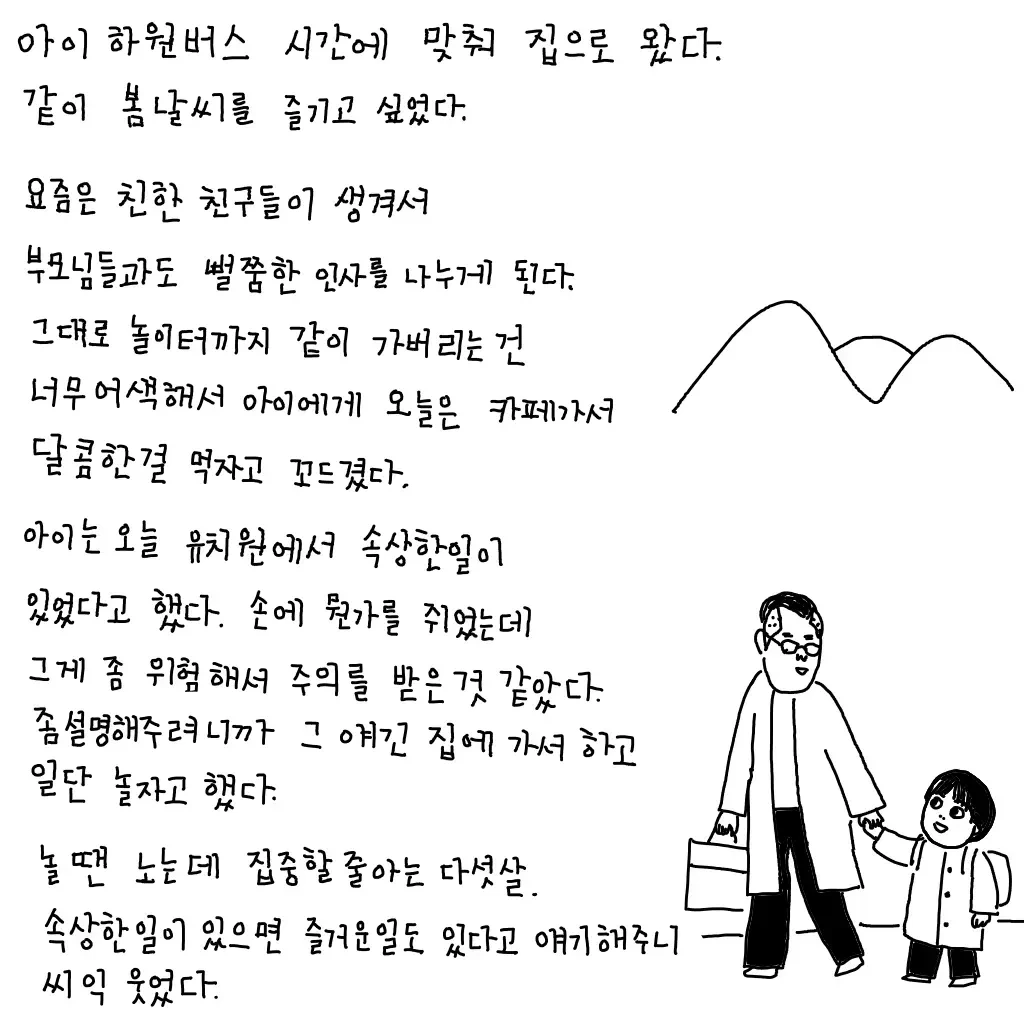 아이 하원버스 시간에 맞춰 집으로 왔다.
같이 봄날씨를 즐기고 싶었다.
요즘은 친한 친구들이 생겨서
부모님들과도 뻘쭘한 인사를 나누게 된다.
그대로 놀이터까지 같이 가버리는건
너무 어색해서 아이에게 오늘은 카페가서
달콤한걸 먹자고 꼬드겼다.
아이는 오늘 유치원에서 속상한일이
있었다고 했다. 손에 뭔가를 쥐었는데
그게 좀 위험해서 주의를 받은것 같았다.
좀설명해주려니까 그 얘긴 집에 가서 하고
일단 놀자고 했다.
놀 땐 노는데 집중할줄아는 다섯살.
속상한일이 있으면 즐거운일도 있다고 얘기해주니
씨익 웃었다.